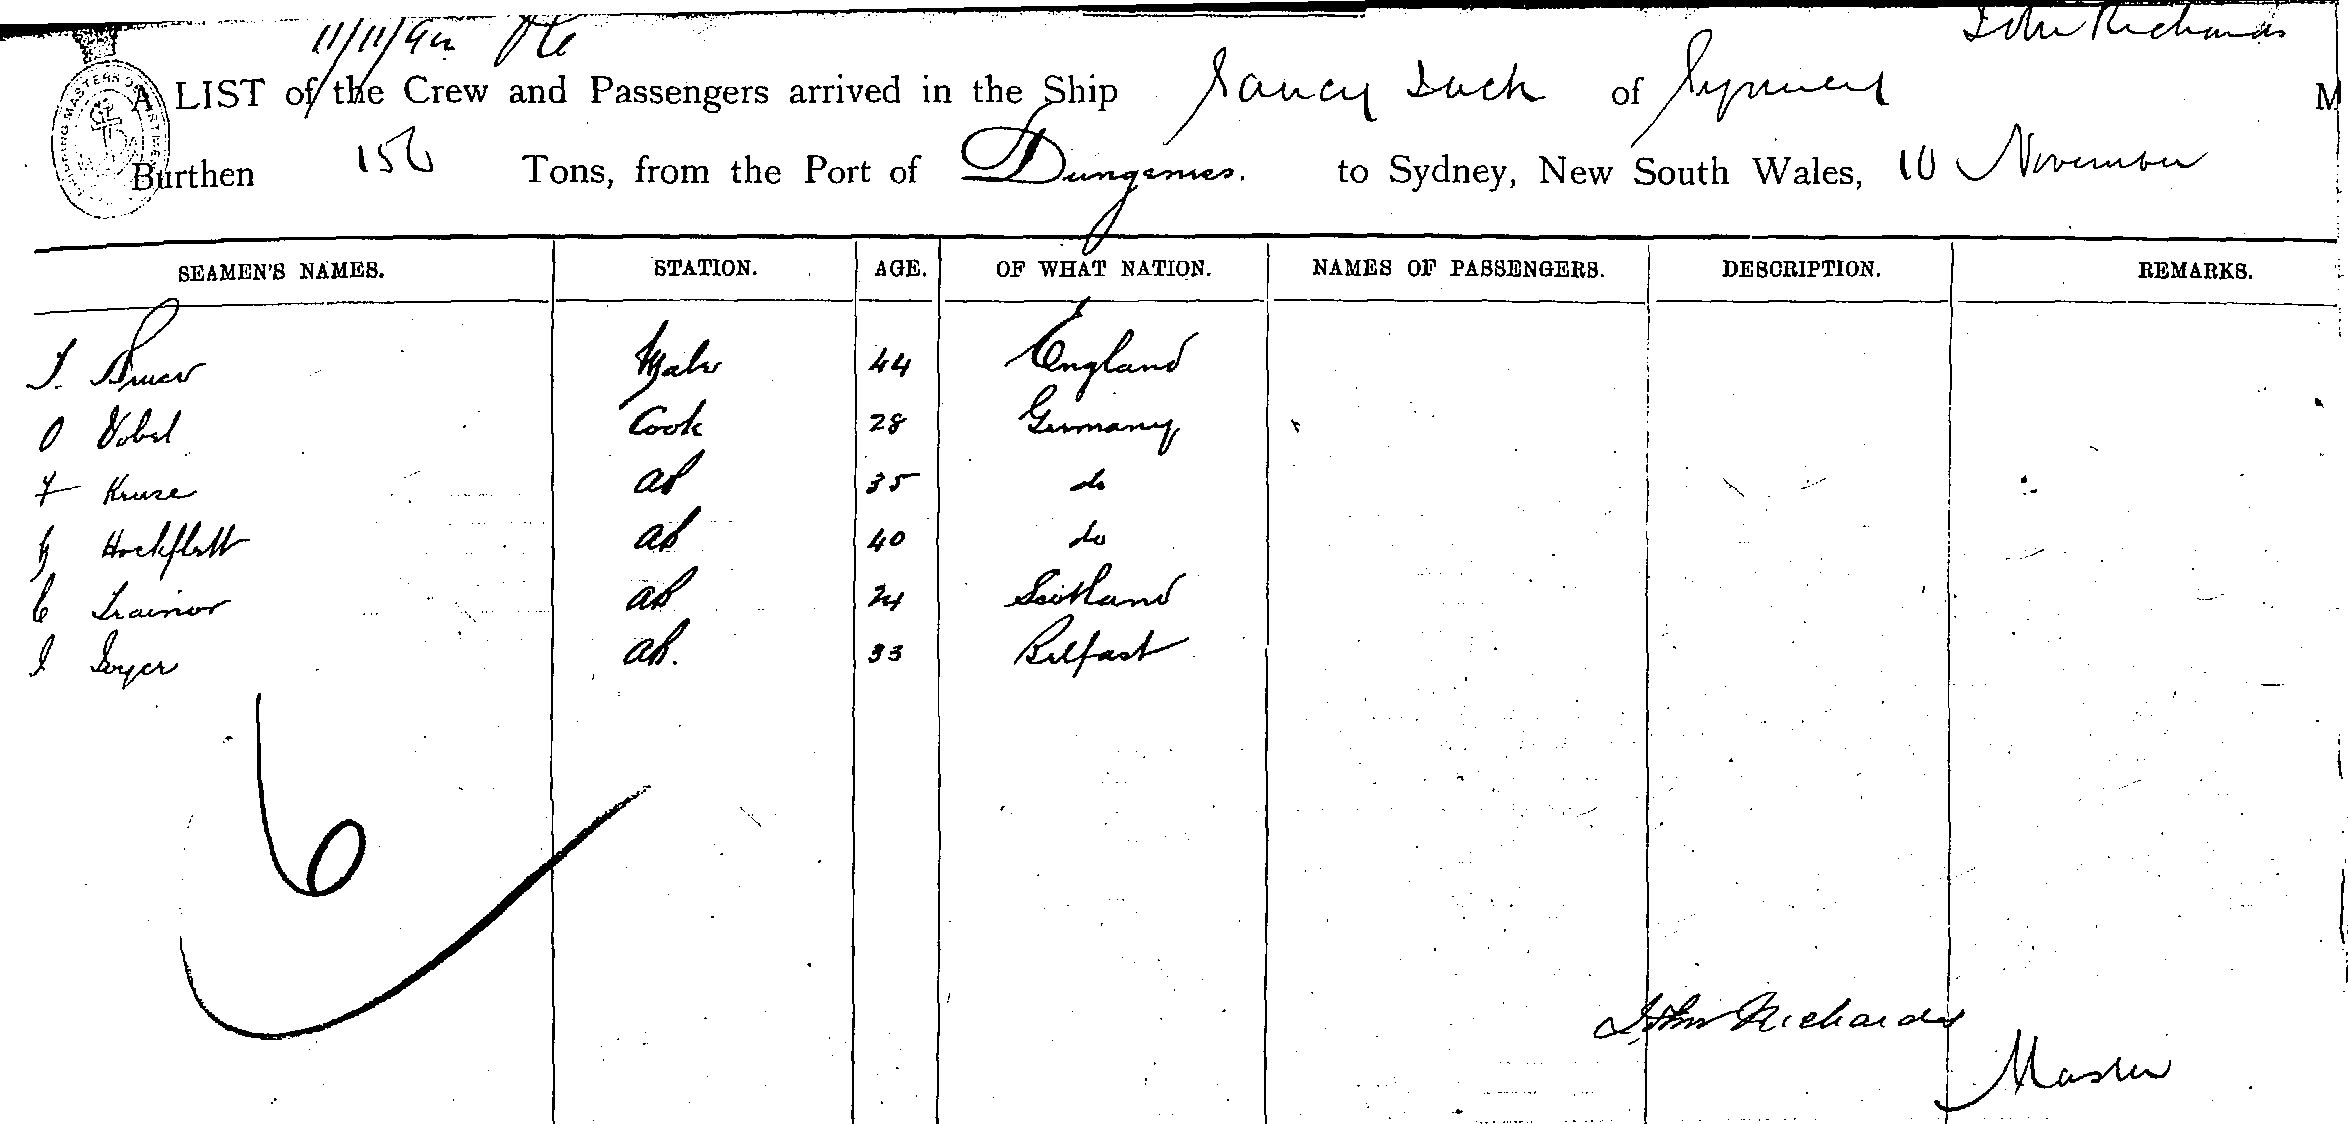 11/11/92
John Richards
A LIST of the Crew and Passengers arrived in the Ship Saucy Jack of
Burthen 156 Tons, from the Port of Dungeness. to Sydney, New South Wales, 10 November
SEAMEN'S NAMES. STATION. AGE. OF WHAT NATION. NAMES OF PASSENGERS. DESCRIPTION. REMARKS.
Mate 44 England
O Vobel Cook 28 Germany
F Kruse AB 35 do
AB 40 do
C Trainor AB 24 Scotland
AB. 33 Belfast
6
John Richards
Master